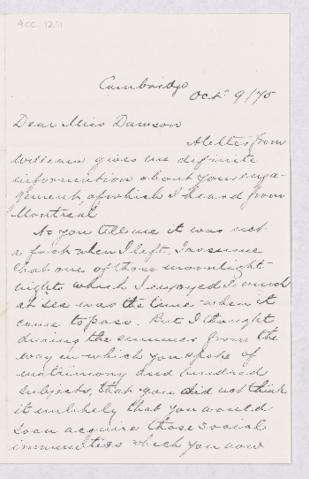 ACC 1211
Cambridge
Oct. 9/75
Dear Miss Dawson
A letter from
William gives me definite
information about your enga-
gement, of which I heard from
Montreal
As you tell me it was not
a fact when I left, I presume
that one of those moonlight
nights which I enjoyed so much
at sea was the time when it
came to pass. But I thought
during the summer from the
way in which you spoke of
matrimony and kindred
subjects, that you did not think
it unlikely that you would
soon acquire those social
immunities which you now